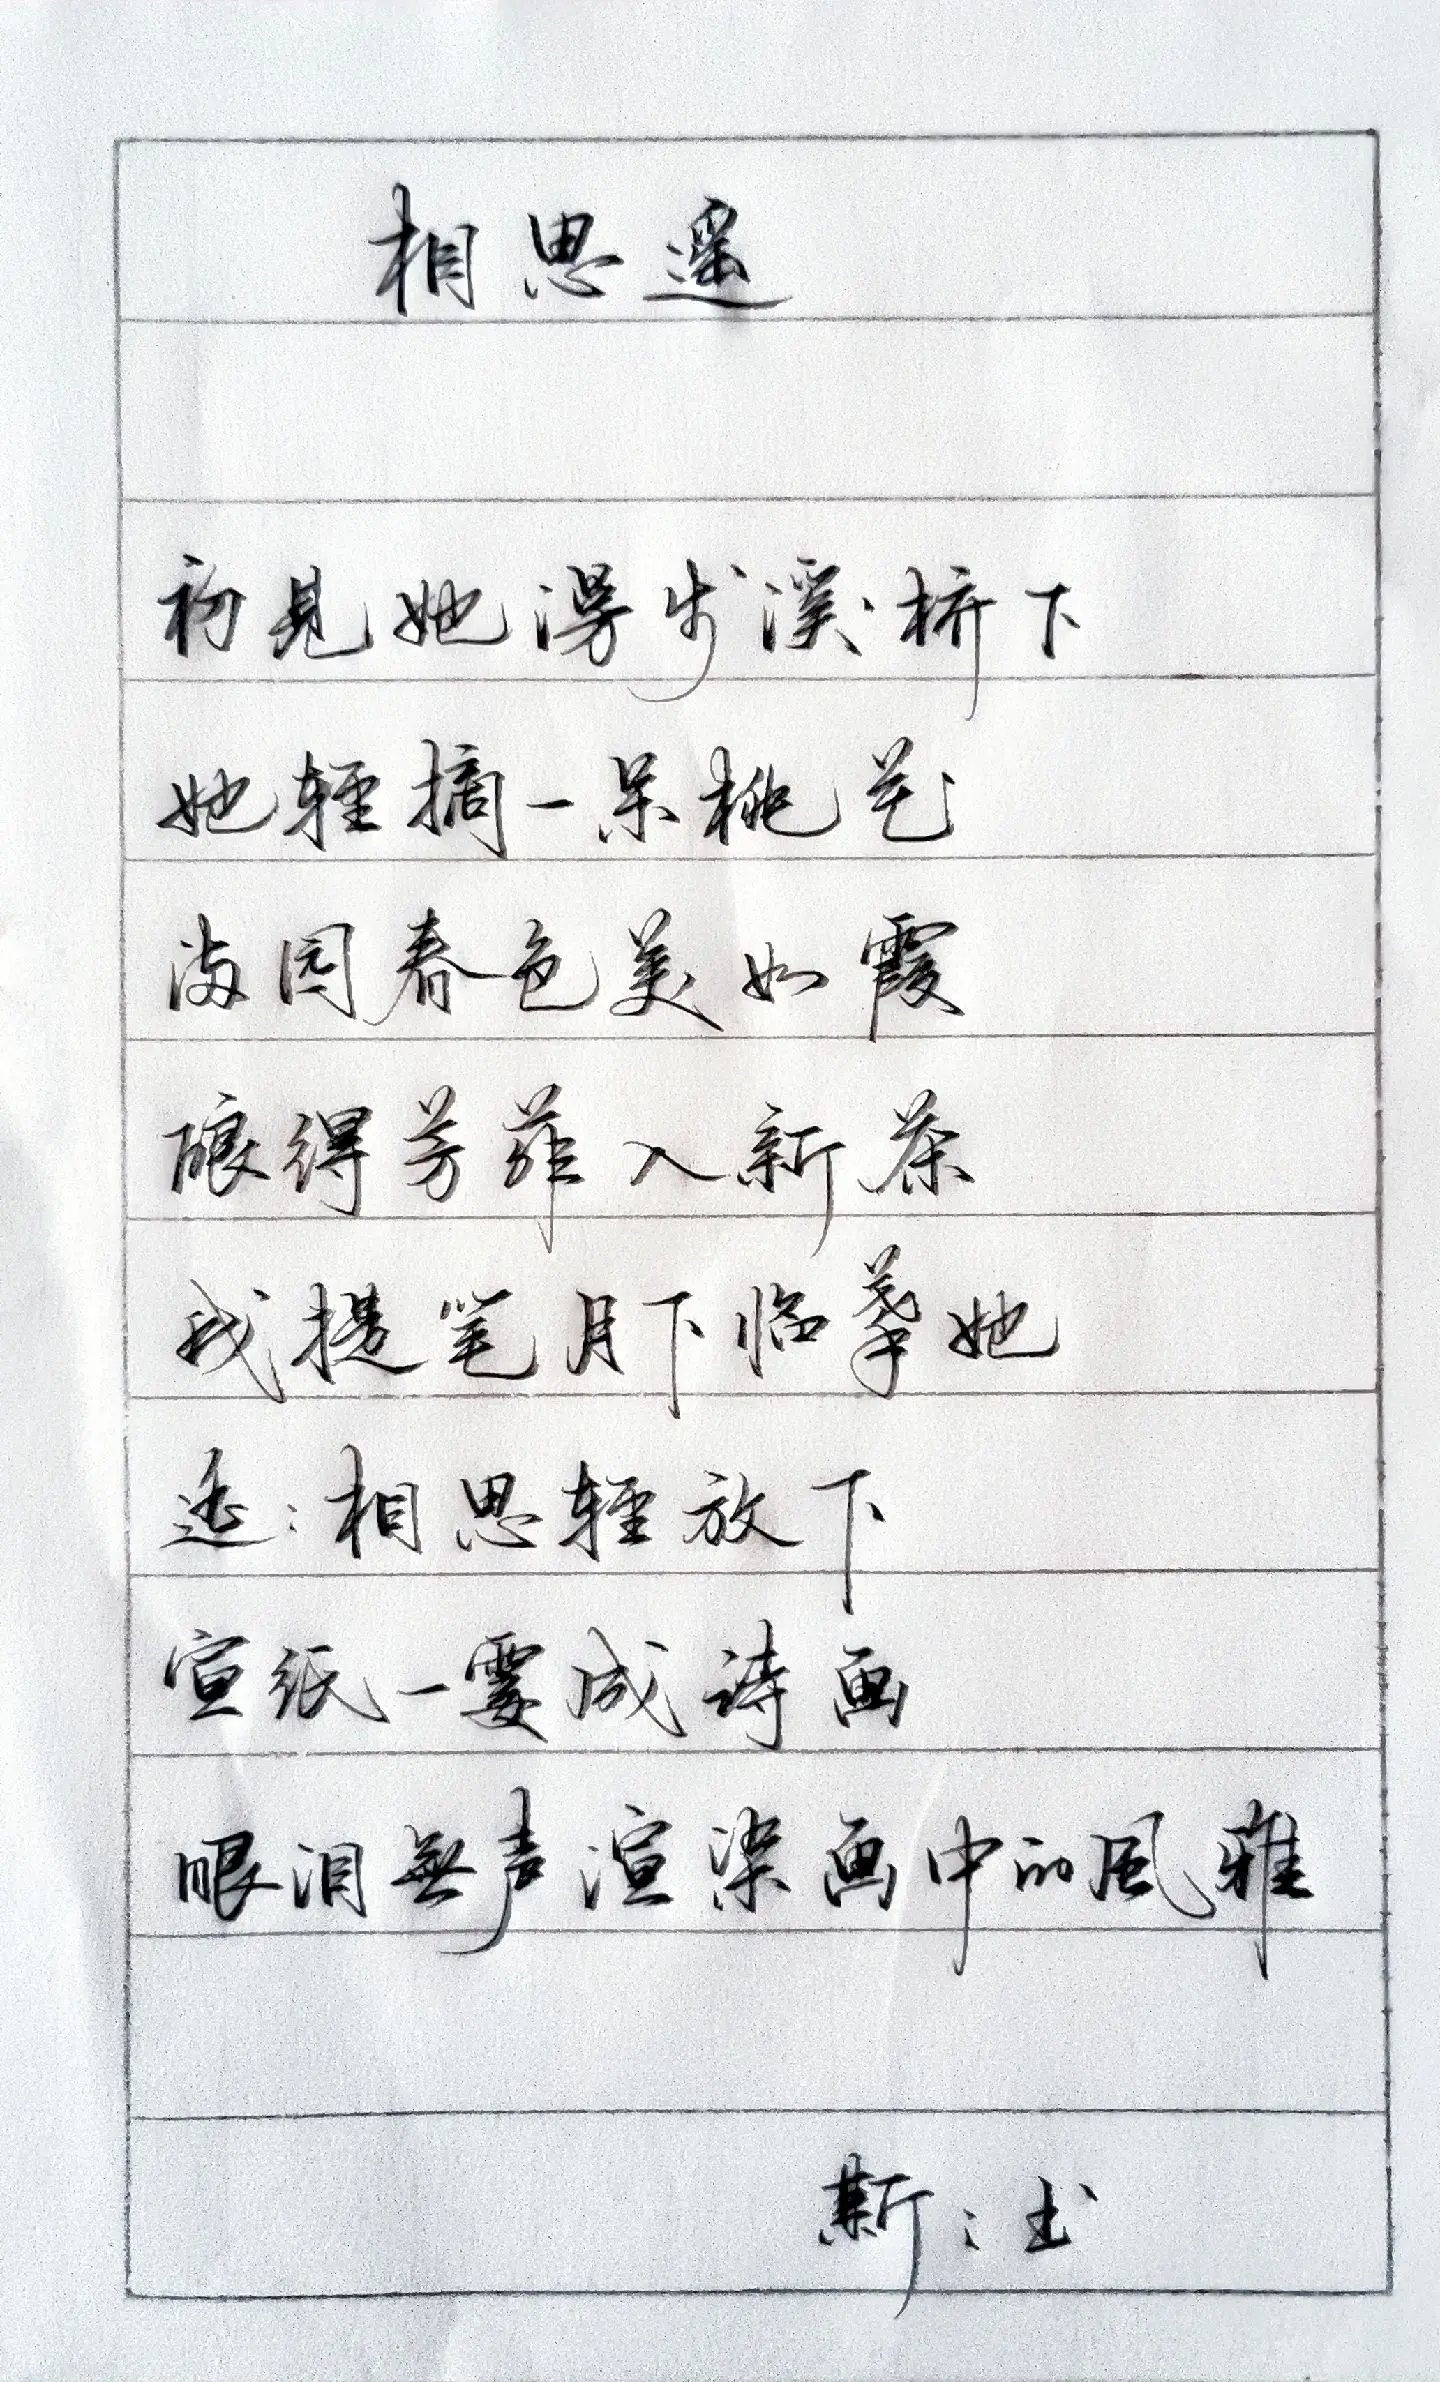 相思遥
初见她漫步溪桥下
她轻摘一朵桃花
满园春色美如霞
酿得芳菲入新茶
我提笔月下临摹她
透:相思轻放下
宣纸一霎成诗画
眼泪無声渲染画中的風雅
斯:书